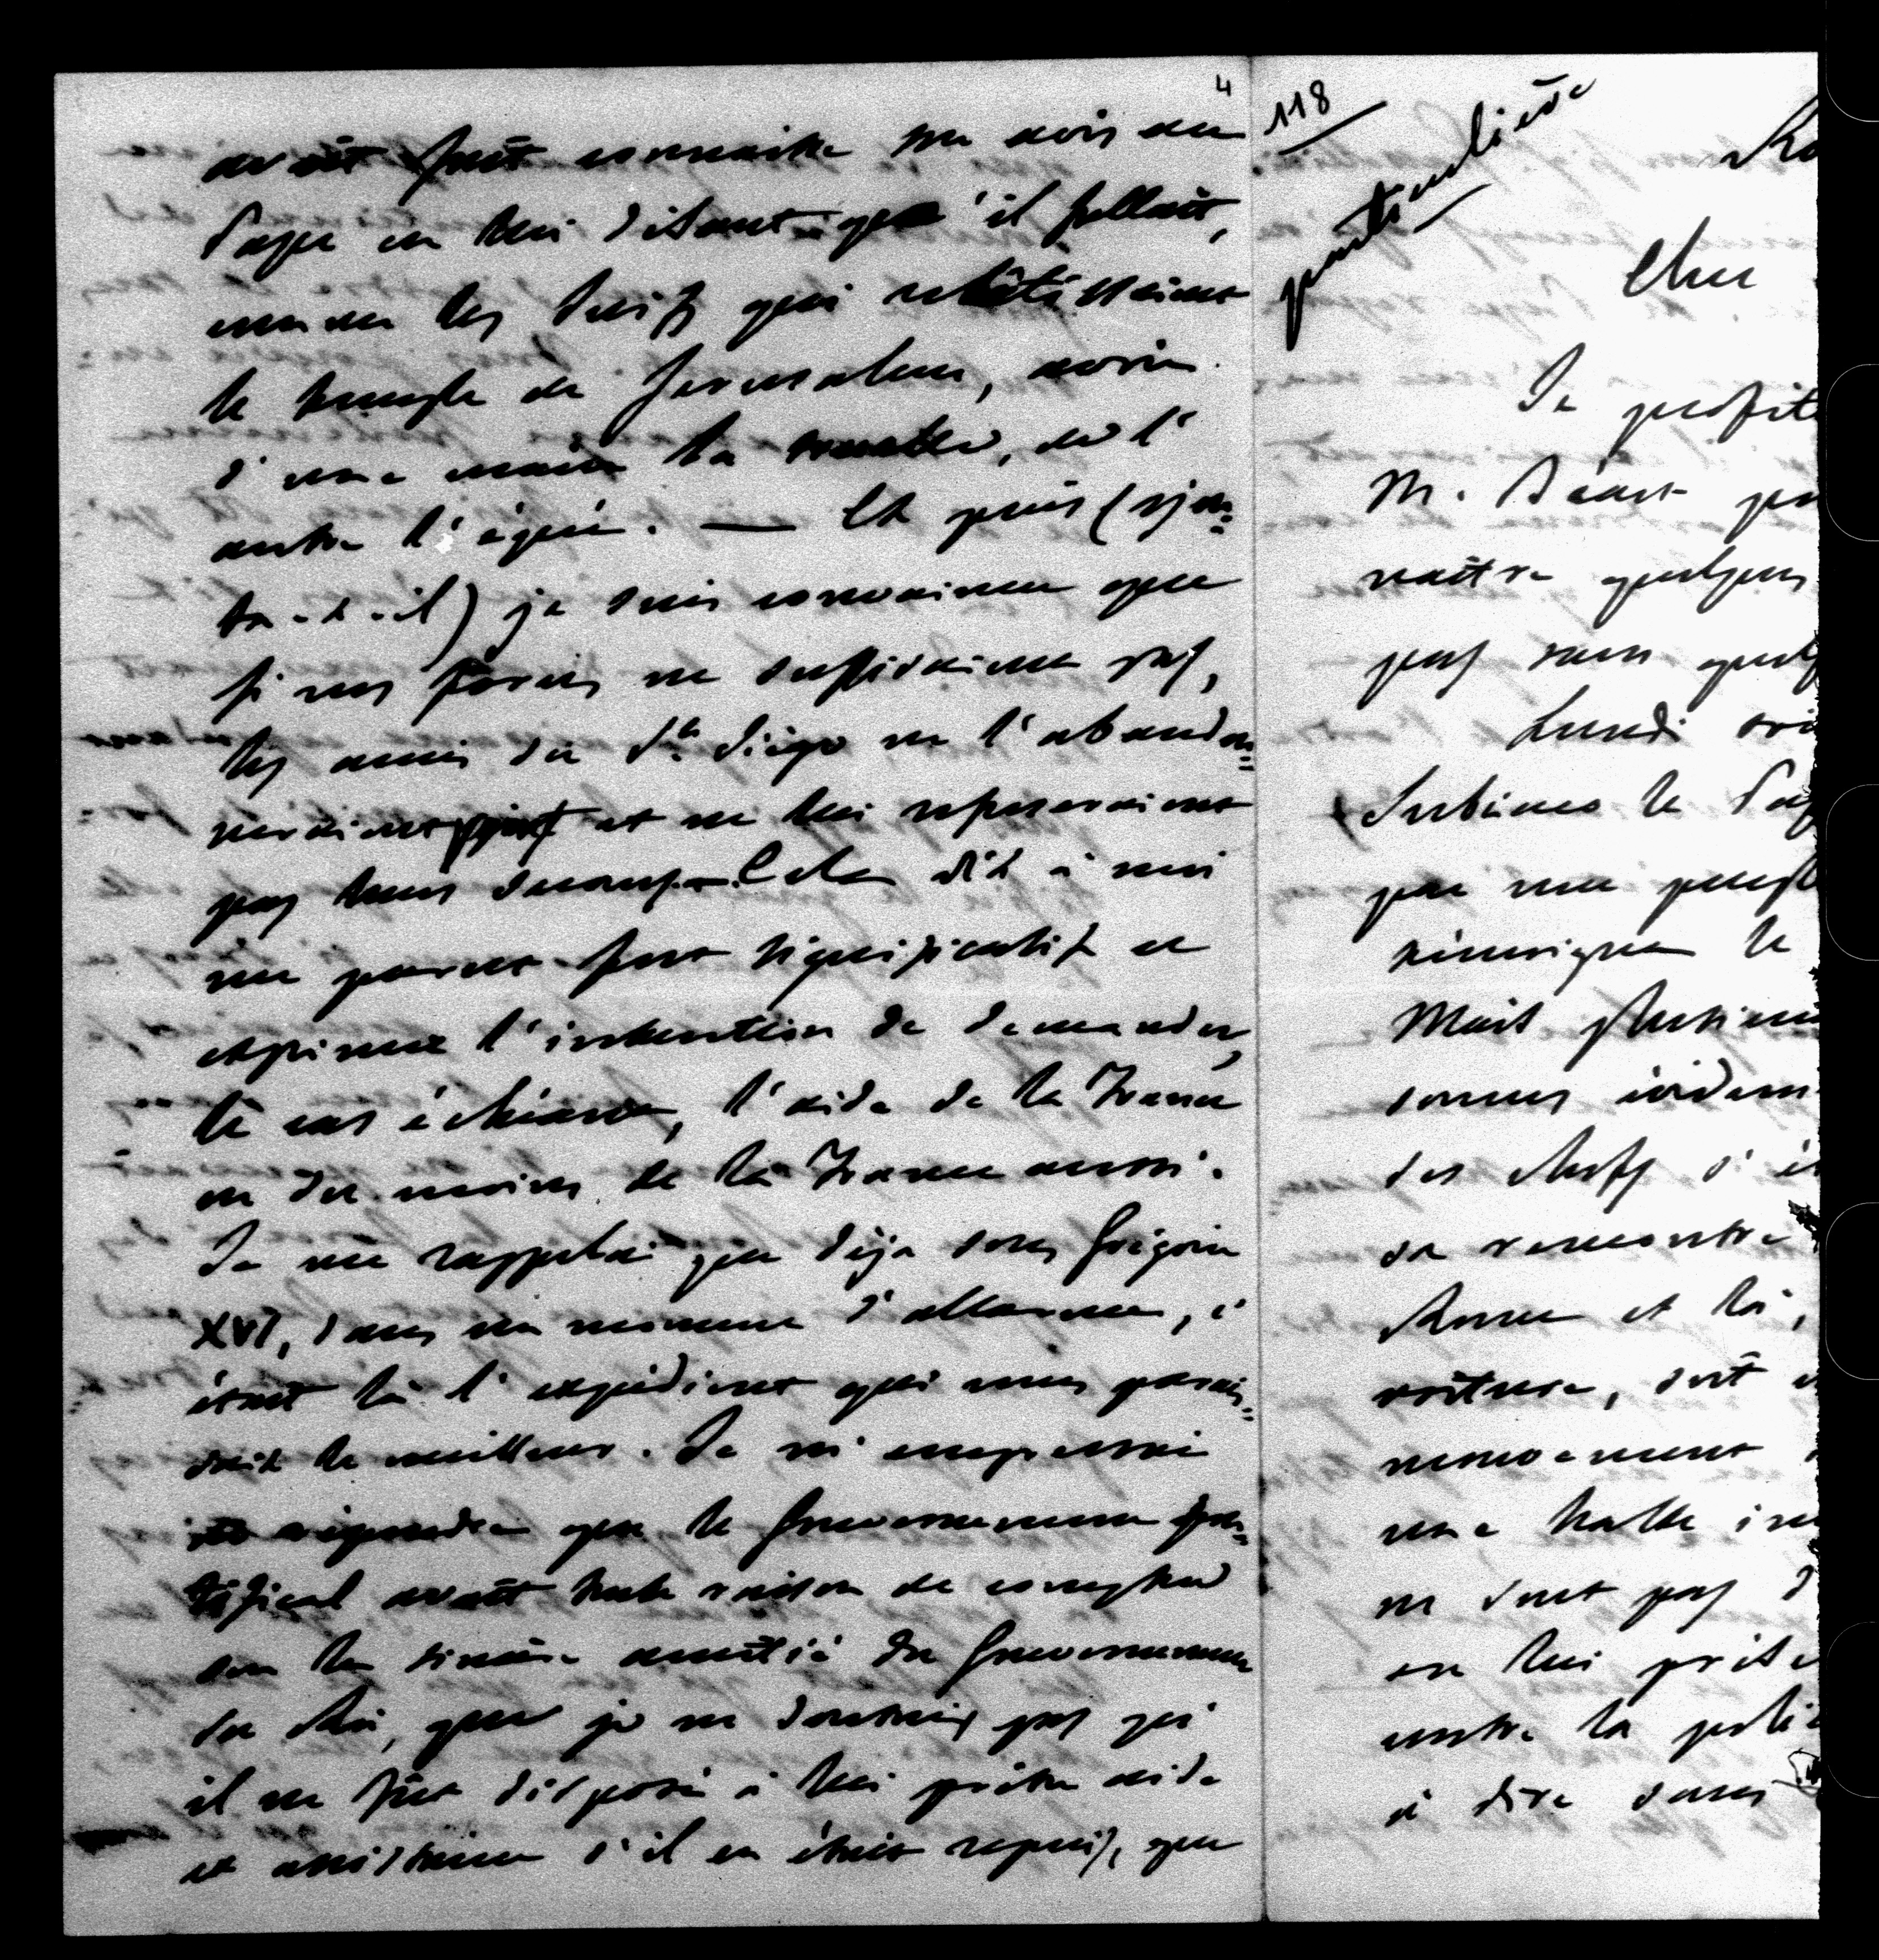 4
avait fait connaître son avis au
Pape en lui disant qu'il fallait,
comme les Juifs qui rebâtissaient
le temple de Jerusalem, avoir
d'une main la truelle, de l'
autre l'épée. — Et puis (ajou=
ta-t-il) je suis convaincu que
si nos forces ne suffisaient pas,
les amis du St. Siége ne l'abandon=
neraient point et ne lui refuseraient
pas leurs secours. — Cela dit à moi
me parut fort significatif et
exprimer l'intention de demander,
le cas échéant, l'aide de la France
ou du moins de la France aussi.
Je me rappelai que déja sous Grégoire
XVI, dans un moment d'allarme, c'
était là l'expédient qui nous parais=
sait le meilleur. Je m'empressai
de répondre que le Gouvernement pon=
tifical avait toute raison de compter
sur la sincère amitié du Gouvernement
du Roi, que je ne doutais pas qu'
il ne fut disposé à lui prêter aide
et assistance s'il en était requis, que
118
particulière
Ro
Cher
Je profite
M. Béart
naître quelques
pas sans quelq
Lundi
Subiaco le Pap
par une
le
Mais plusieurs
sonnes évidem
des chefs s'é
sa rencontre
Rome et là,
voiture, soit
mouvement
une halte
ne sont pas d
en lui
contre la
à dire sans